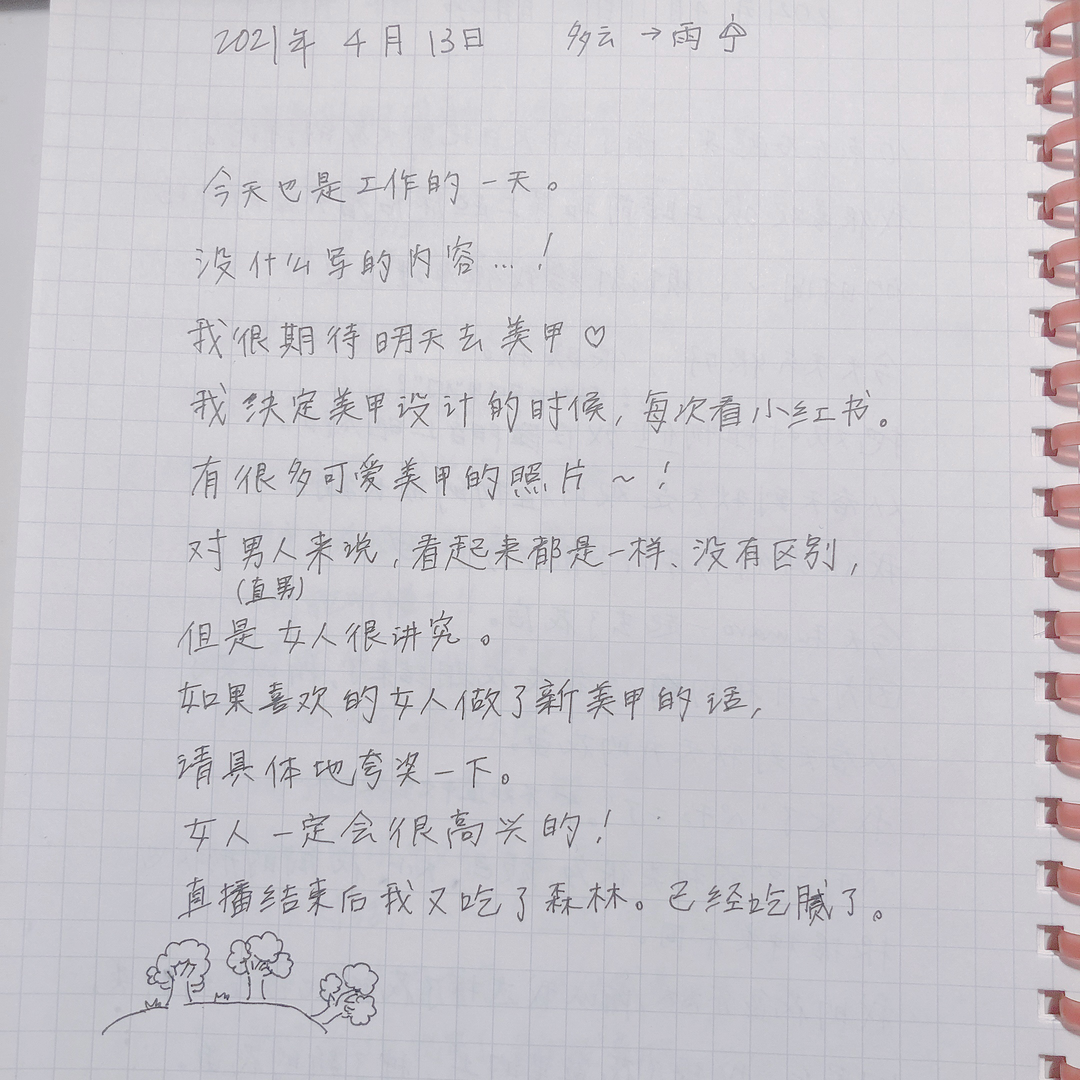 2021年 4月 13日 多云 → 雨
今天也是工作的一天。
没什么写的内容...！
我很期待明天去美甲♡
我决定美甲设计的时候，每次看小红书。
有很多可爱美甲的照片～！
对男人来说，看起来都是一样、没有区别，
(直男)
但是女人很讲究。
如果喜欢的女人做了新美甲的话，
请具体地夸奖一下。
女人一定会很高兴的！
直播结束后我又吃了森林。已经吃腻了。